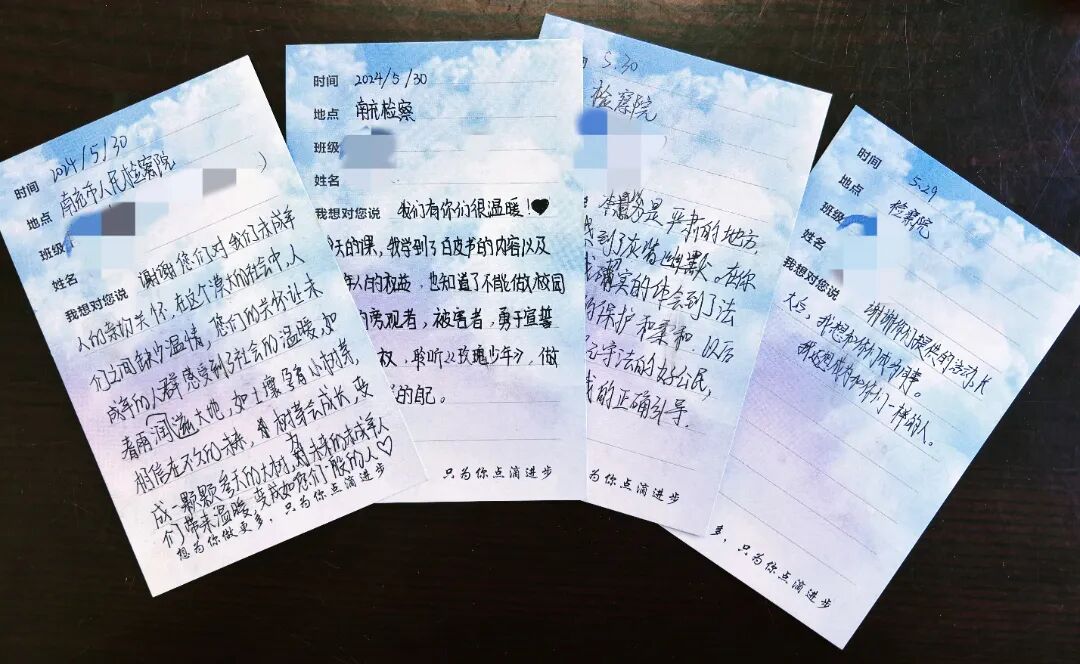 时间 2024/5/30
地点 南充市人民检察院
班级
姓名
我想对您说 谢谢您们对我们未成年
人的亲切关怀,在这个漠大的社会中,人
们之间缺少温情,您们的关怀让未
成年的人群感受到了社会的温暖,如
春雨润滋大地,如土壤呈育小树苗,
相信在不久的未来,树苗会成长,变
成一颗颗参天的大树,对未来的未成年人
们带来温暖,变成如您们一般的人♡
想为你做更多,只为你点滴进步
时间 2024/5/30
地点 南充检察
班级
姓名
我想对您说 我们有你们很温暖!♥
天的课,我学到了白皮书的内容以及
年人的权益,也知道了不能做校园
的旁观者,被害者,勇于宣誓
权,聆听《玫瑰少年》,做
的自己。
只为你点滴进步
5.30
检察院
是严肃的地方,
找到了灰谐幽默。在你
确实的体会到了法
的保护和柔和.以后
守法的好公民,
的正确引导.
为你点滴进步
时间 5.29
地点 检察院
班级
姓名
我想对您说 谢谢你们提供的活动,长
大后,我想和你们成为同事。
我还想成为和你们一样的人。
多,只为你点滴进步